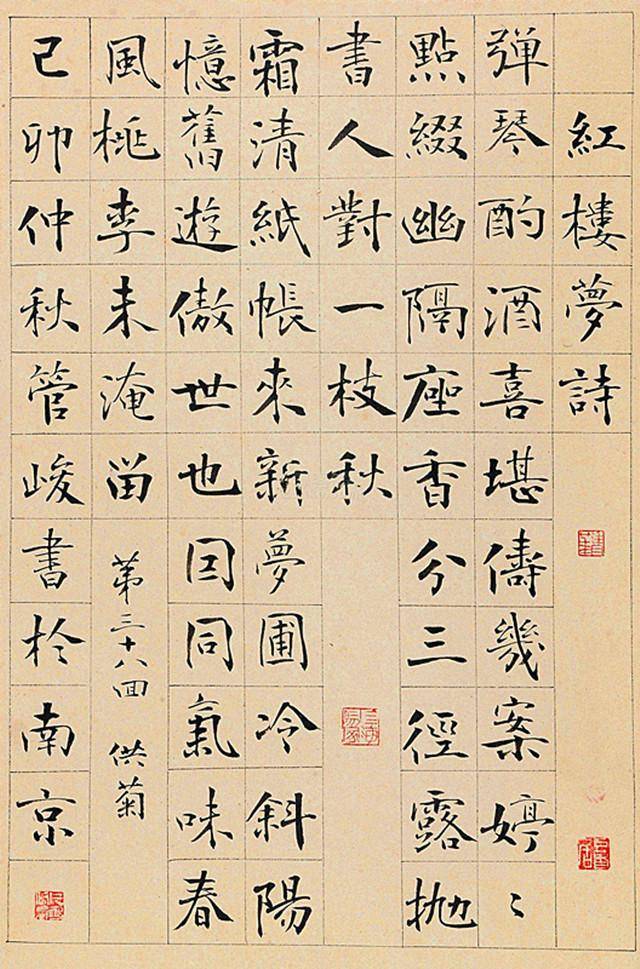 紅樓夢詩
彈琴酌酒喜堪儔幾案婷〻
點綴幽隔座香分三徑露拋
書人對一枝秋
霜清紙帳來新夢圃冷斜陽
憶舊遊傲世也囙同氣味春
風桃李未淹留 第三十八回 供菊
己卯仲秋管峻書扵南京